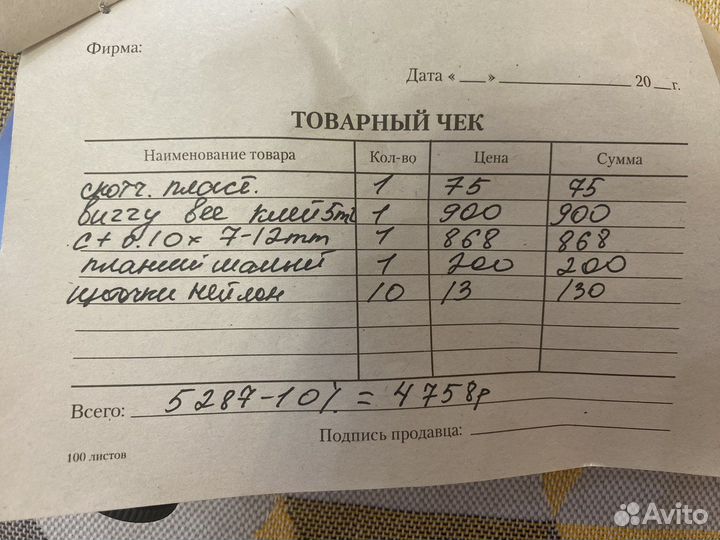 Фирма:
Дата «___» ______________ 20__г.
ТОВАРНЫЙ ЧЕК
Наименование товара Кол-во Цена Сумма
скотч. пласт. 1 75 75
вее клей 5ml 1 900 900
10x 7-12mm 1 868 868
малый 1 200 200
нейлон 10 13 130
Всего: 5287-10% = 4758р
Подпись продавца:
100 листов
Avito